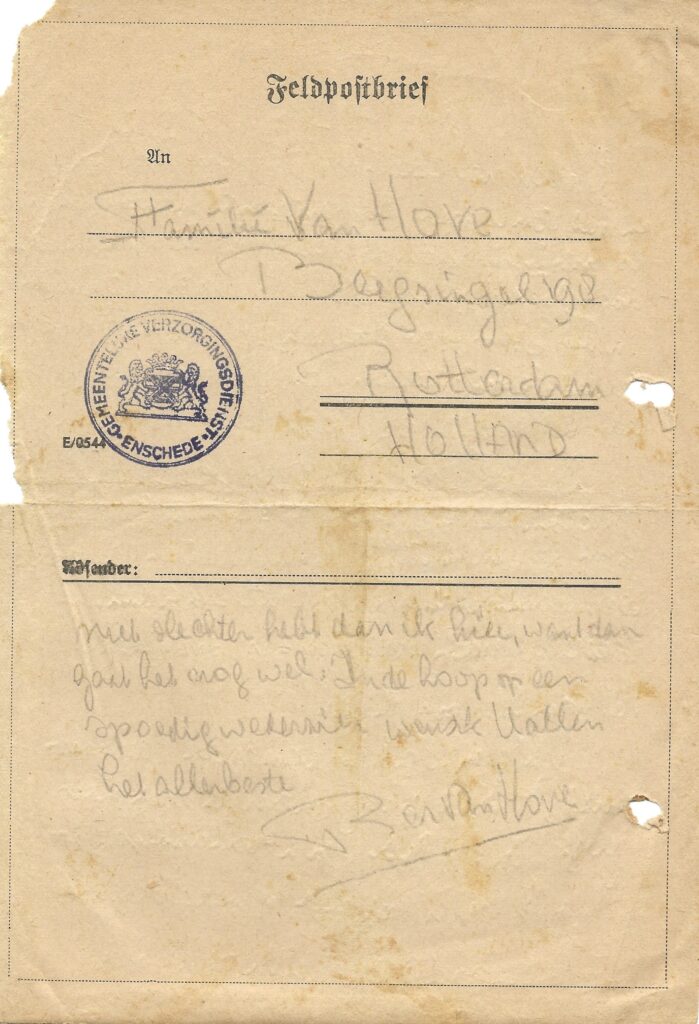 Feldpostbrief
An
Familie Van Hove
Bergsingel 198
Rotterdam
HOLLAND
GEMEENTELIJKE VERZORGINGSDIENST
• ENSCHEDE •
E/0544
Absender:
niet slechter hebt dan ik hier, want dan
gaat het nog wel. In de hoop op een
spoedig wederzien wensch U allen
het allerbeste
Van Hove